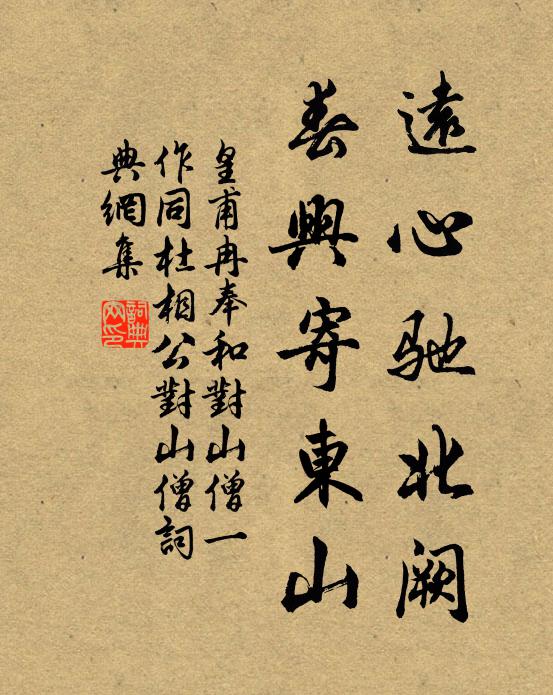 遠心馳北阙
春興寄東山
皇甫冉奉和對山僧一
作同杜相公對山僧詞
典網集
詞典網印